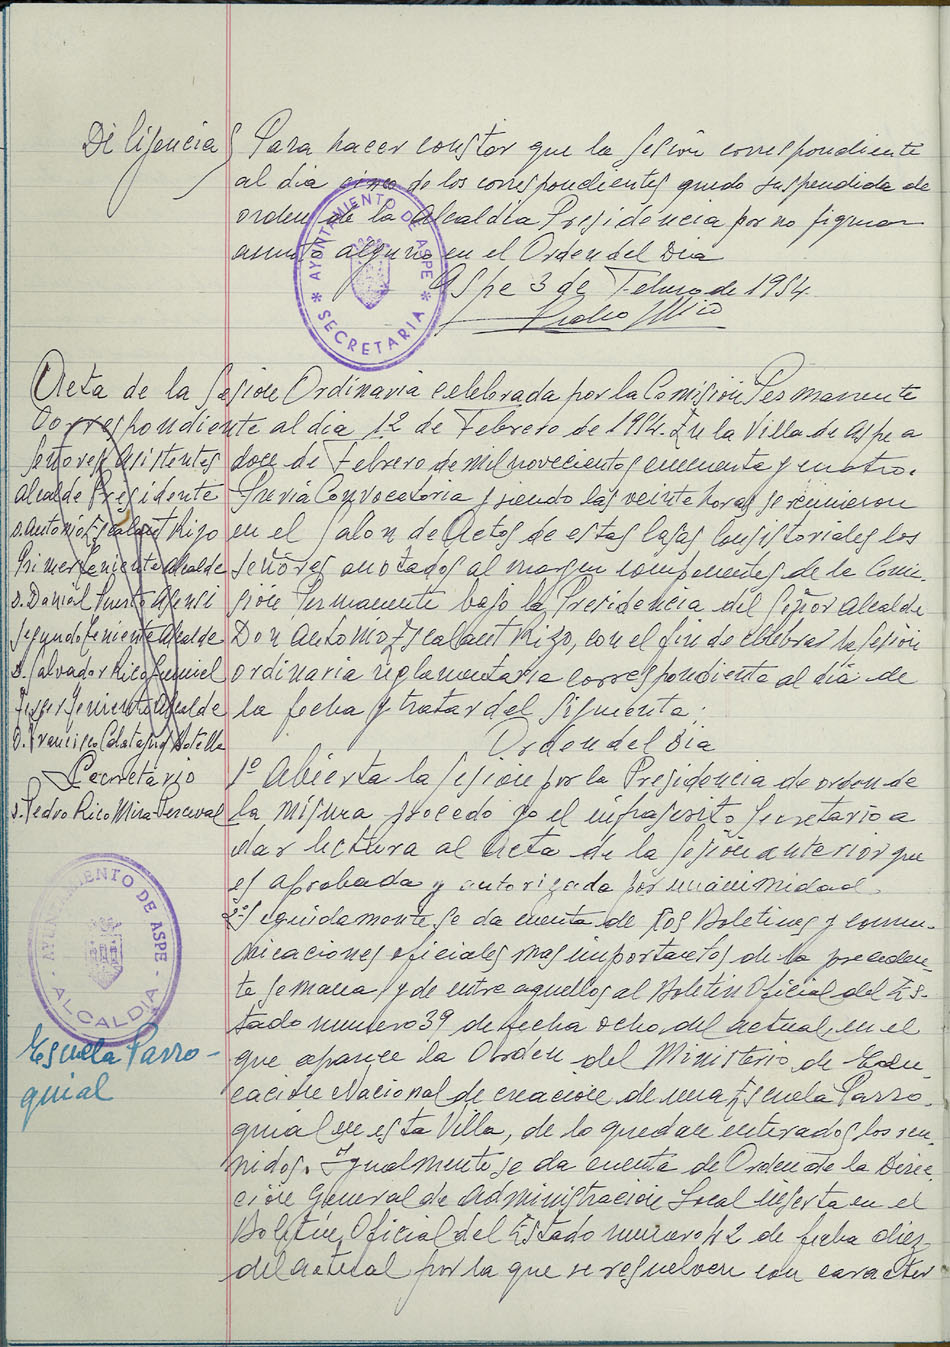 Diligencia Para hacer constar que la sesión correspondiente
al dia cinco de los correspondientes quedo suspendida de
orden de la Alcaldia Presidencia por no figurar
asunto alguno en el Orden del Dia
Aspe 3 de Febrero de 1954.
Pedro Rico
AYUNTAMIENTO DE ASPE
* SECRETARIA *
Acta de la Sesión Ordinaria celebrada por la Comisión Permanente
Correspondiente al dia 12 de Febrero de 1954. En la Villa de Aspe a
doce de Febrero de mil novecientos cincuenta y cuatro.
Previa Convocatoria y siendo las veinte horas se reunieron
en el Salon de Actos de estas Casas Consistoriales los
señores anotados al margen componentes de la Comi-
sión Permanente bajo la Presidencia del Señor Alcalde
Don Antonio Escalant Rizo, con el fin de celebrar la sesión
ordinaria reglamentaria correspondiente al dia de
la fecha y tratar del siguiente:
Orden del Dia
Señores Asistentes
Alcalde Presidente
D. Antonio Escalant Rizo
Primer Teniente Alcalde
D. Daniel Puerto Asensi
Segundo Teniente Alcalde
D. Salvador Rico
Tercer Teniente Alcalde
D. Francisco Calatayud Botella
Secretario
D. Pedro Rico Mira-Perceval
1º Abierta la Sesión por la Presidencia de orden de
la misma procedo yo el infrascrito Secretario a
dar lectura al Acta de la Sesión anterior que
es aprobada y autorizada por unanimidad.
2º Seguidamente se da cuenta de los Boletines y comu-
nicaciones oficiales mas importantes de la preceden-
te semana y de entre aquellos al Boletin Oficial del Es-
tado numero 39 de fecha ocho del actual en el
que aparece la Orden del Ministerio de Edu-
cación Nacional de creación de una Escuela Parro-
quial en esta Villa, de lo quedan enterados los reu-
nidos. Igualmente se da cuenta de Orden de la Direc-
ción General de Administración Local inserta en el
Boletin Oficial del Estado numero 42 de fecha diez
del actual por la que se resuelven con caracter
AYUNTAMIENTO DE ASPE
- ALCALDÍA -
Escuela Parro-
quial